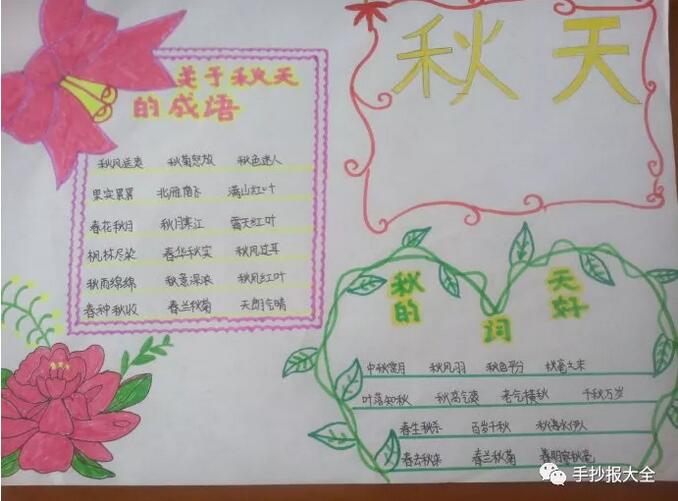 秋天
关于秋天
的成语
秋风送爽 秋菊怒放 秋色迷人
果实累累 北雁南飞 满山红叶
春花秋月 秋月寒江 霜天红叶
枫林尽染 春华秋实 秋风过耳
秋雨绵绵 秋风红叶
春种秋收 春兰秋菊 天朗气晴
秋天
的词好
中秋赏月 秋风 秋色平分 秋毫
叶落知秋 秋高气爽 老气横秋 千秋万岁
春生秋杀 百岁千秋 秋水伊人
春去秋来 春兰秋菊 秋毫
手抄报大全